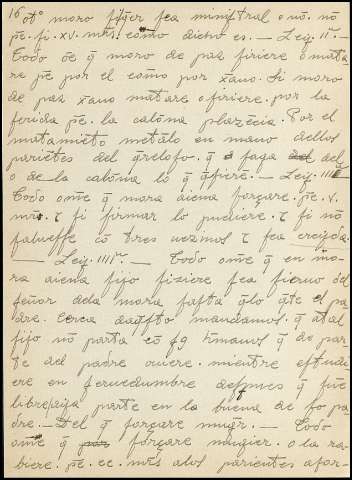 16 otº moro fijere sea ministral o nõ. nõ
pẽ. si. xv. mr̃s. como dicho es. — Ley. IIª. —
Todo õe q̃ moro de paz firiere o mata
re pẽ por el como por xãno. Si moro
de paz xãno matare o firiere. por la
ferida pẽ. la calõma plazẽcia. Por el
matamiẽto metãlo en mano dellos
pariẽtes del q̃reloso. q̃ faga del
o de la calõma lo q̃ q̃sierẽ. — Ley. IIIª
Todo om̃e q̃ mora aiena forçare. pẽ. x.
mr̃s. τ si firmar lo pudiere. τ si nõ
salvesse cõ tres vezinos τ sea creydo.
— Ley. IIIIª. — Todo om̃e q̃ en mo-
ra aiena fijo fiziere sea siervo del
señor dela mora fasta q̃lo q̃te el pa
dre. Cerca daq̃sto mandamos. q̃ atal
fijo nõ parta cõ sq hr̃manos q̃ de par
te del padre oviere. mientre estudi
ere en servedumbre despues q̃ fue
libre aya parte en la buena de so pa
dre. — Del q̃ forçare mugr̃. — Todo
om̃e q̃ forçare mugier. o la ro-
biere. pẽ. cc. mr̃s alos parientes afor-